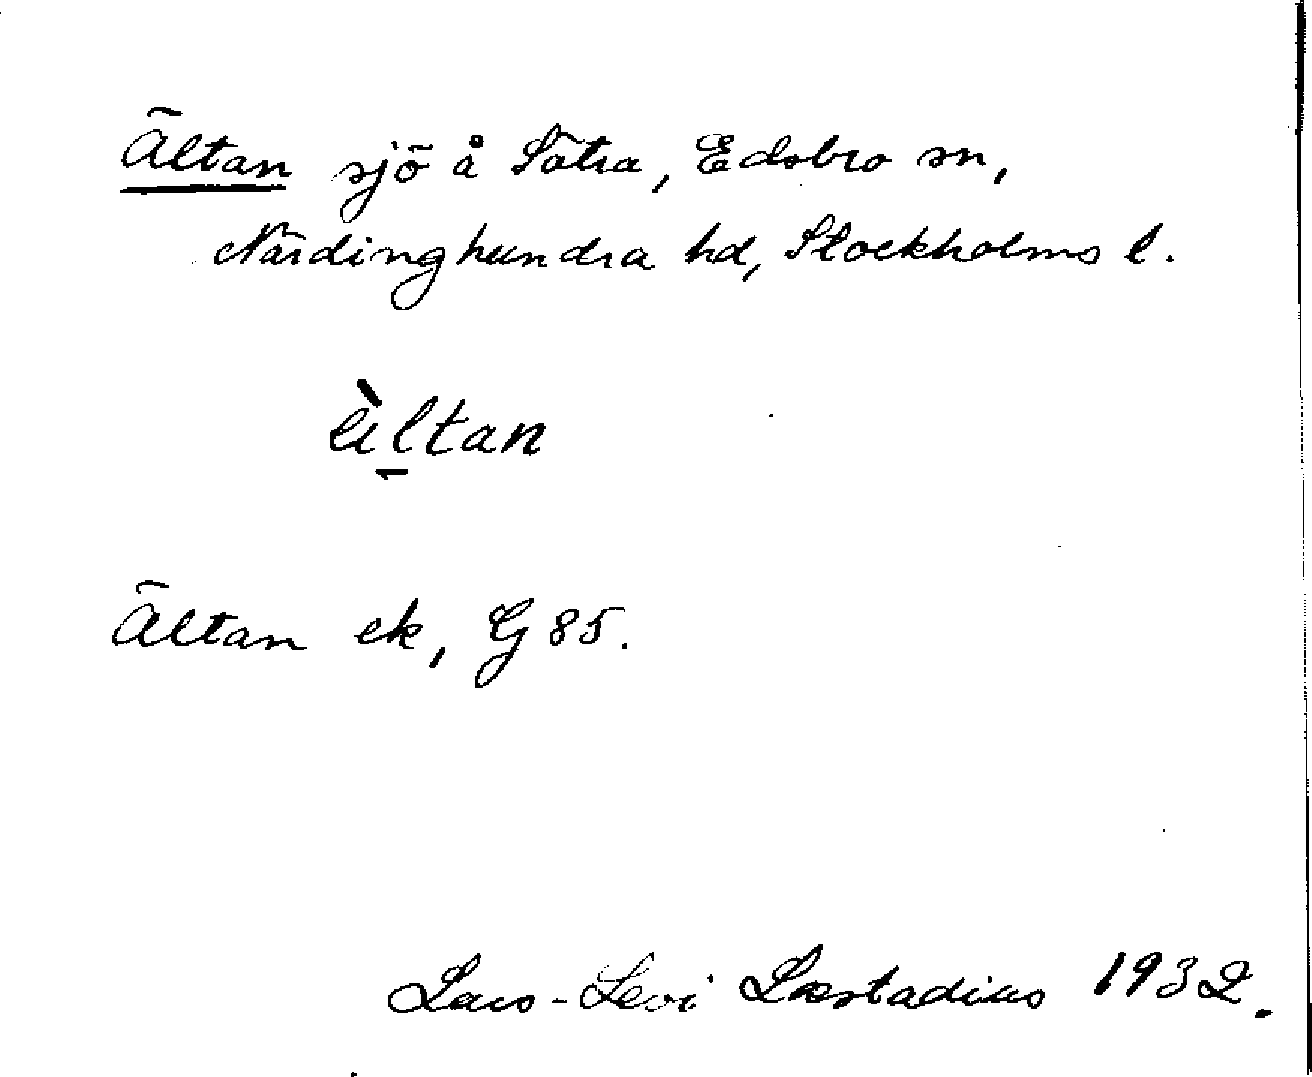 Ältan sjö å Sätra, Edsbro sn,
Närdinghundra hd, Stockholms l.
ältan
Ältan ek, G 85.
Lars-Levi Læstadius 1932.